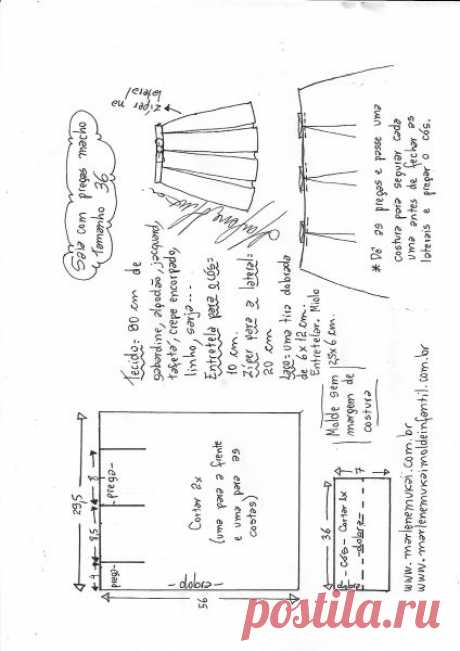 Saia com pregas macho
Tamanho 36
zíper na
lateral
Tecido: 80 cm de
gabardine, algodão, jacquard,
tafetá, crepe encorpado,
linho, sarja...
Entretela para o cós:
10 cm.
Zíper para a lateral:
20 cm
Laço: uma tira dobrada
de 6 x 12 cm.
Entretelar. Miolo
2,5x6 cm.
* Dê as pregas e passe uma
costura para segurar cada
uma antes de fechar as
laterais e pregar o cós.
29,5
4
8,5
8
prega
prega
Cortar 2x
(uma para a frente
e uma para as
costas)
dobra
56
Molde sem
margem de
costura
36
7
Cós - Cortar 1x
dobra
dobra
www.marlenemukai.com.br
www.marlenemukaimoldeinfantil.com.br
postila.ru